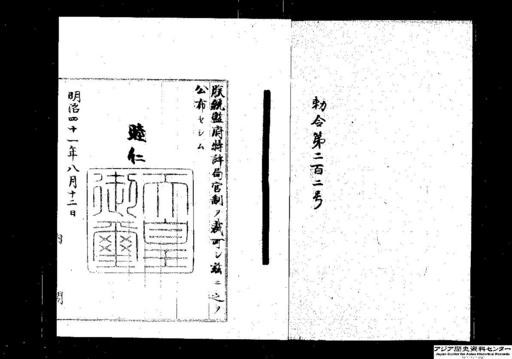 勅令第二百二号
朕統監府特許局官制ヲ裁可シ茲ニ之ヲ
公布セシム
睦仁
天皇
御璽
明治四十一年八月十二日
内閣
アジア歴史資料センター
Japan Center for Asian Historical Records